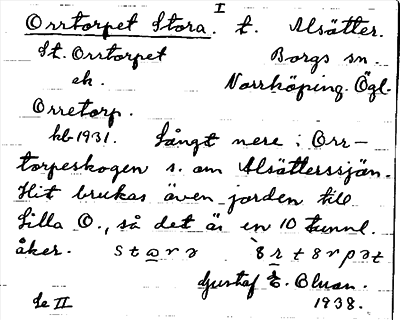 I
Orrtorpet Stora. t. Alsätter.
St. Orrtorpet Borgs sn.
ek. Norrköping. Ögl.
Orretorp.
kb 1931. Långt nere i Orr-
torpeskogen s. om Alsätterssjön.
Hit brukas även jorden till
Lilla O., så det är en 10 tunnl.
åker.
Gustaf E. Bluan.
Se II 1938.